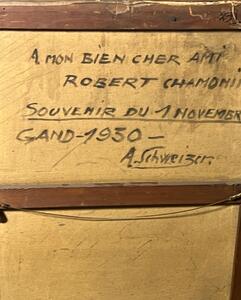 A MON BIEN CHER AMI
ROBERT CHAMONI
SOUVENIR DU 1 NOVEMBR
GAND-1930-
A. Schweizer.